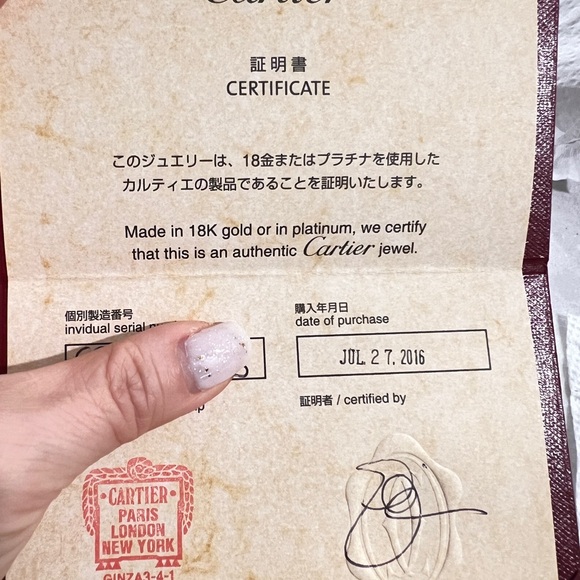 Cartier
証明書
CERTIFICATE
このジュエリーは、18金またはプラチナを使用した
カルティエの製品であることを証明いたします。
Made in 18K gold or in platinum, we certify
that this is an authentic Cartier jewel.
個別製造番号
invidual serial
購入年月日
date of purchase
JUL. 27. 2016
証明者 / certified by
CARTIER
PARIS
LONDON
NEW YORK
GINZA3-4-1